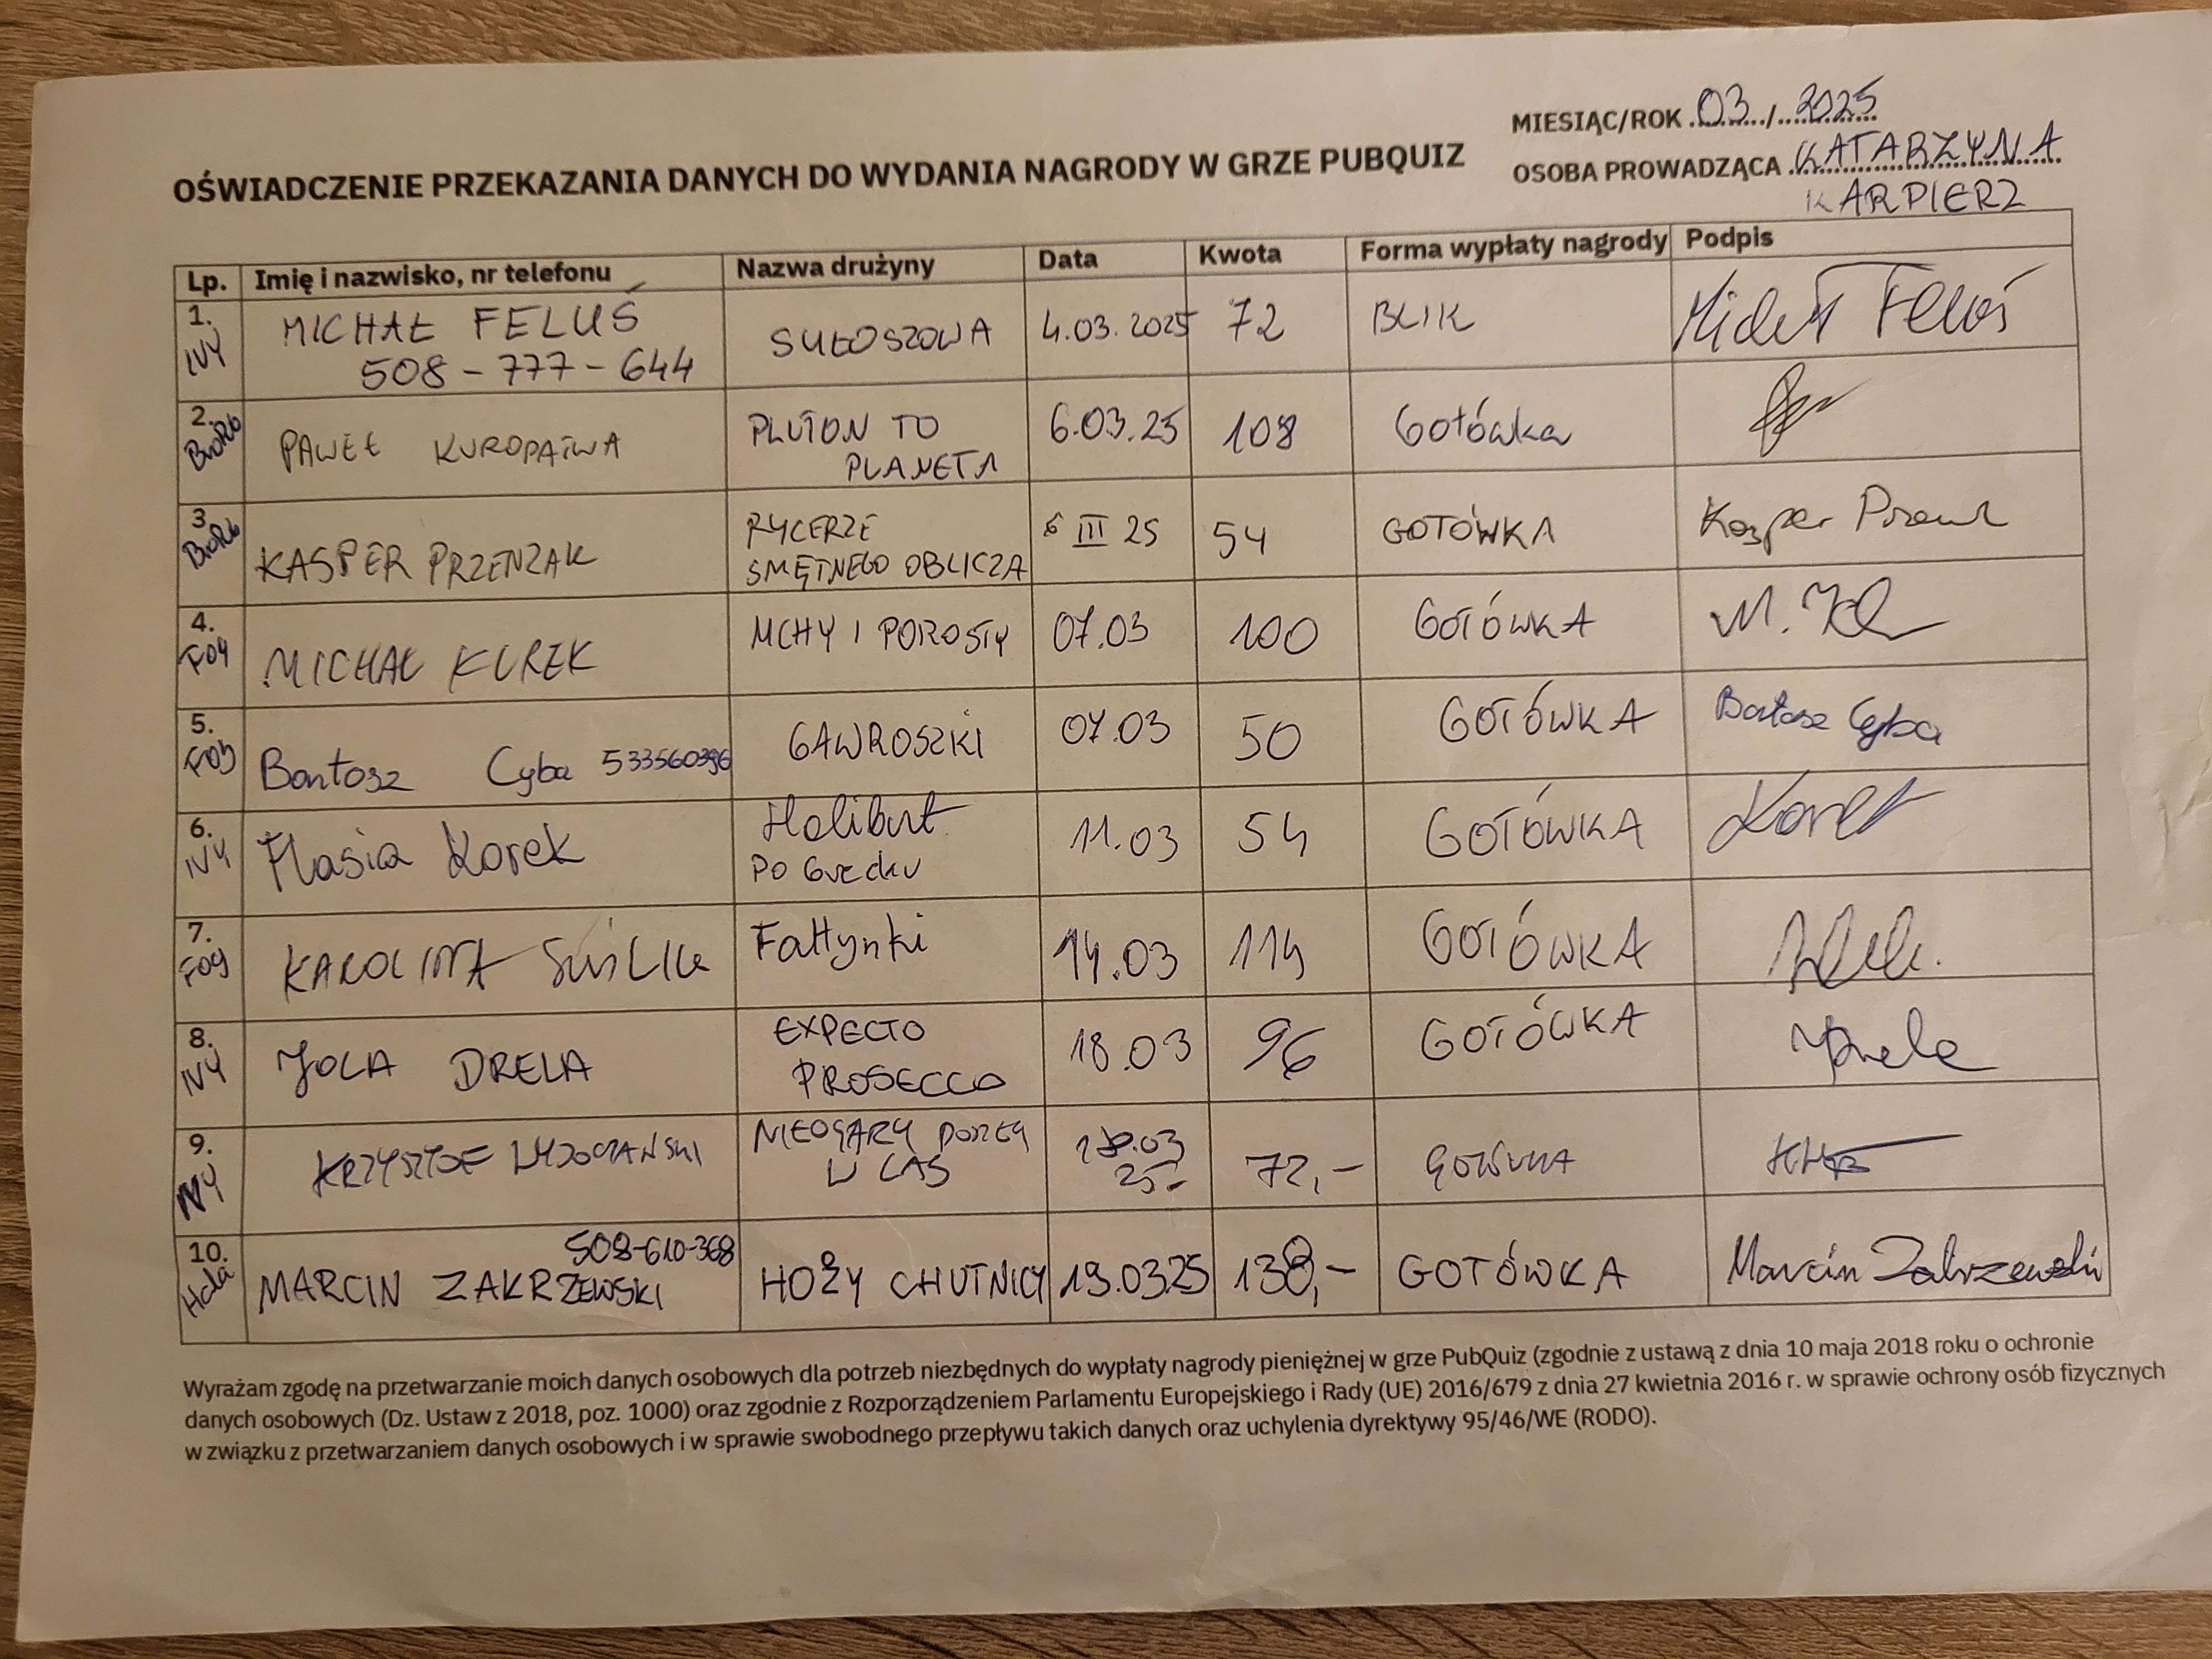 MIESIĄC/ROK 03/2025
OŚWIADCZENIE PRZEKAZANIA DANYCH DO WYDANIA NAGRODY W GRZE PUBQUIZ
OSOBA PROWADZĄCA KATARZYNA
KARPIERZ
Lp. Imię i nazwisko, nr telefonu Nazwa drużyny Data Kwota Forma wypłaty nagrody Podpis
1. IVY MICHAŁ FELUŚ SUŁOSZOWA 4.03.2025 72 BLIK Michał Feluś
508-777-644
2. BIORB PAWEŁ KUROPATWA PLUTON TO 6.03.25 108 Gotówka
PLANETA
3. BIORB KASPER PRZENZAK RYCERZE 6 III 25 54 GOTÓWKA Kasper
SMĘTNEGO OBLICZA
4. FOY MICHAŁ KUREK MCHY I POROSTY 07.03 100 GOTÓWKA
5. Bartosz Cyba 533560396 GAWROSZKI 07.03 50 GOTÓWKA Bartosz Cyba
6. IVY Korek Halibut 11.03 54 GOTÓWKA Korek
Po Grecku
7. KAROLINA Fałtynki 14.03 114 GOTÓWKA
8. IVY JOLA DRELA EXPECTO 18.03 96 GOTÓWKA JDrela
PROSECCO
9. IVY KRZYSZTOF NIEOGARY POSZŁY 72,- GOTÓWKA
W LAS 25
10. Hala 508-610-368
MARCIN ZAKRZEWSKI HOŻY CHUTNICY 19.03.25 138,- GOTÓWKA Marcin Zakrzewski
Wyrażam zgodę na przetwarzanie moich danych osobowych dla potrzeb niezbędnych do wypłaty nagrody pieniężnej w grze PubQuiz (zgodnie z ustawą z dnia 10 maja 2018 roku o ochronie
danych osobowych (Dz. Ustaw z 2018, poz. 1000) oraz zgodnie z Rozporządzeniem Parlamentu Europejskiego i Rady (UE) 2016/679 z dnia 27 kwietnia 2016 r. w sprawie ochrony osób fizycznych
w związku z przetwarzaniem danych osobowych i w sprawie swobodnego przepływu takich danych oraz uchylenia dyrektywy 95/46/WE (RODO).